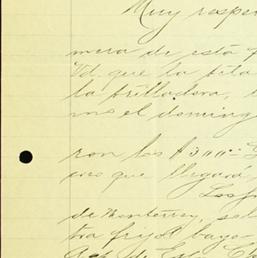 Muy respe
mera de esta
Vd. que la pita
la trilladora,
mos el domingo
ron los $300.00
creo que llegará
Los
de Monterrey, sal
tra frijol bayo